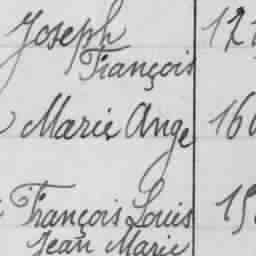 Joseph
François
Marie Ange
François Louis
Jean Marie